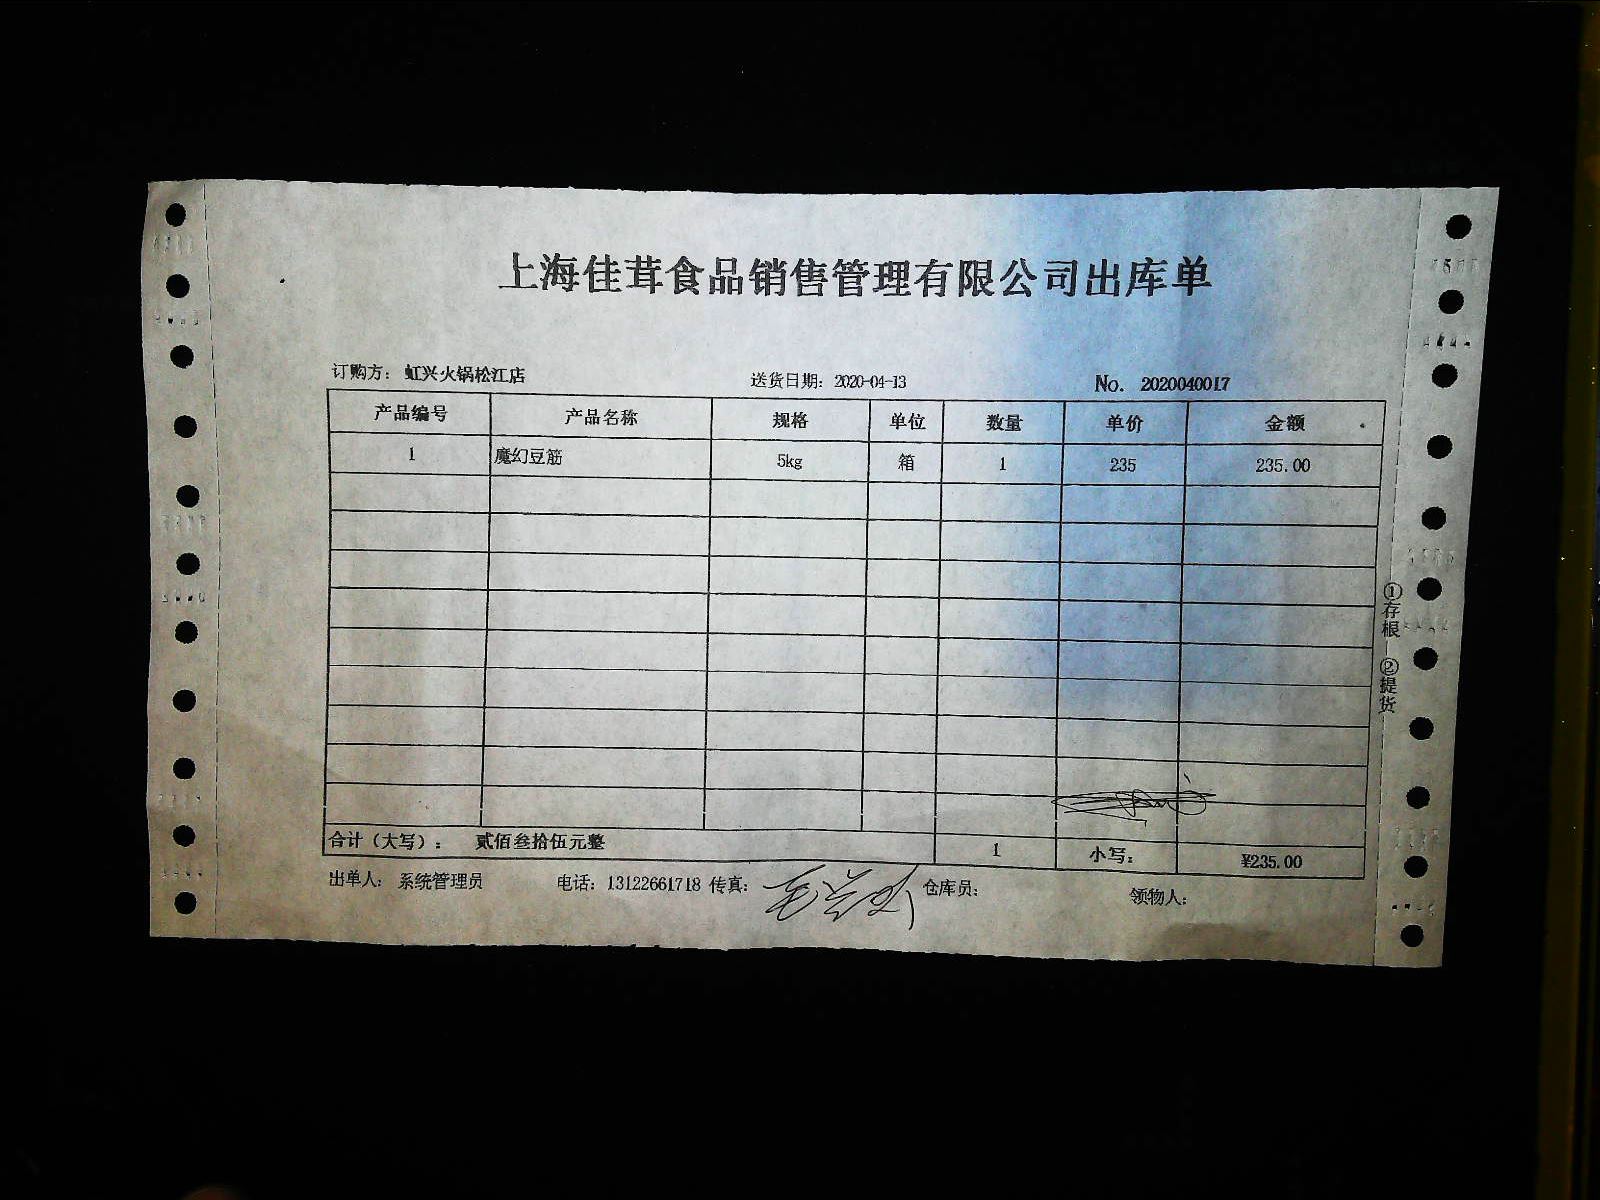 上海佳茸食品销售管理有限公司出库单
订购方: 虹兴火锅松江店 送货日期: 2020-04-13 No. 2020040017
产品编号 产品名称 规格 单位 数量 单价 金额
1 魔幻豆筋 5kg 箱 1 235 235.00
合计（大写）: 贰佰叁拾伍元整 1 小写: ¥235.00
出单人: 系统管理员 电话: 13122661718 传真: 仓库员: 领物人:
①存根 ②提货